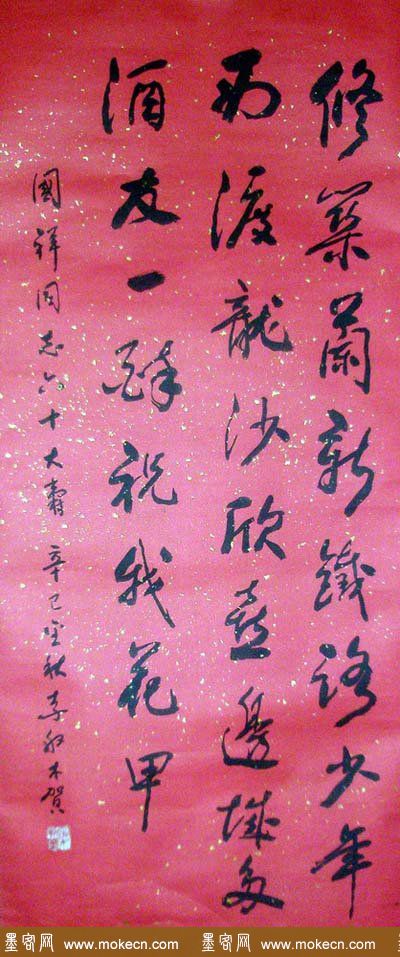 修築蘭新鐵路少年
西渡龍沙欣喜邊城多
酒友一醉祝我花甲
國祥同志六十大壽 辛巳金秋 木賀
墨客网 www.mokecn.com 墨客网 www.mokecn.com